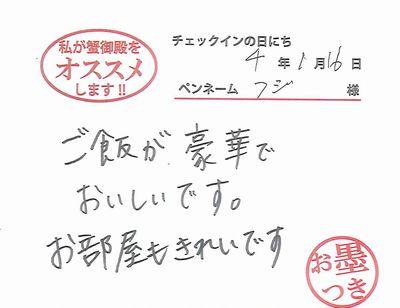 私が蟹御殿を
オススメ
します!!
チェックインの日にち
4 年 1 月 16 日
ペンネーム フジ 様
ご飯が豪華で
おいしいです。
お部屋もきれいです
お墨
つき